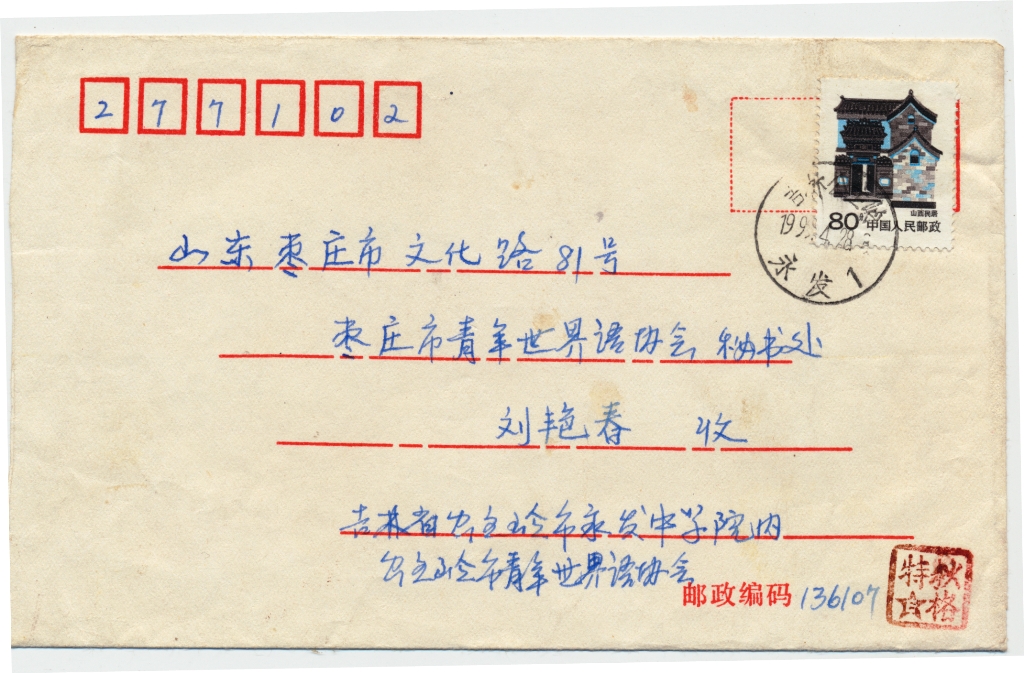 277102
山西民居
80分 中国人民邮政
吉林
199 .4.28.
永发1
山东枣庄市文化路81号
枣庄市青年世界语协会秘书处
刘艳春 收
吉林省公主岭市永发中学院内
公主岭市青年世界语协会
邮政编码 136107
特 狄
宫 格